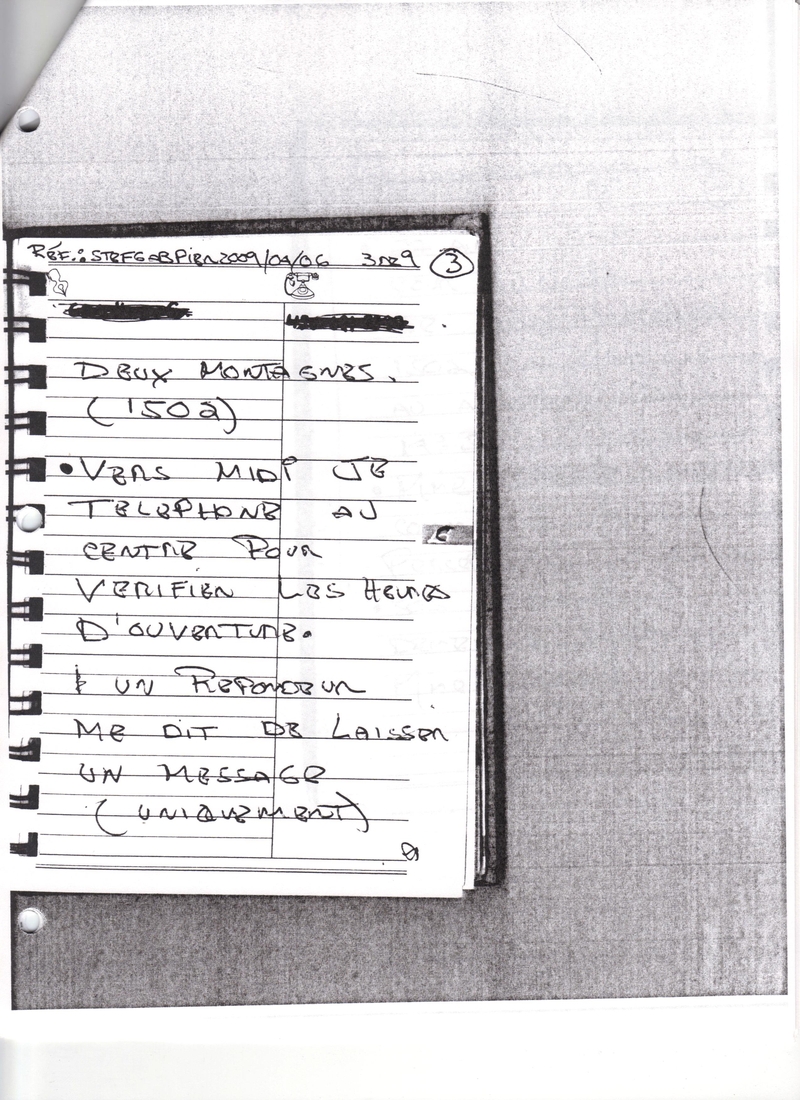 RÉF.: STEFGABPIER2009/04/06 3DE9 3
DEUX MONTAGNES.
(150$)
•VERS MIDI JE
TELEPHONE AU
CENTRE POUR
VERIFIER LES HEURES
D'OUVERTURE.
UN REPONDEUR
ME DIT DE LAISSER
UN MESSAGE
(UNIQUEMENT)